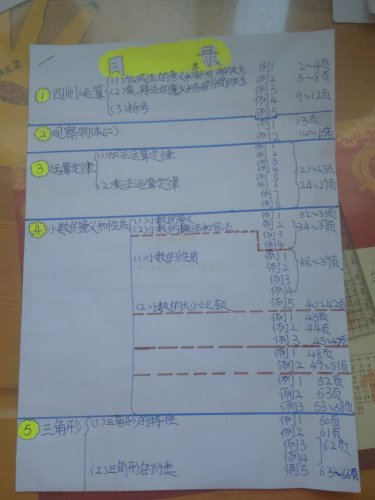 目 录
① 四则运算
(1)加减法的意义和各部分间的关系 例1 2~4页
(2)乘、除法的意义和各部分间的关系 例2 5~8页
例3
(3)括号 例4 9~12页
例5
② 观察物体(二) 例1 13页
例2
③ 运算定律
(1)加法运算定律 例1
例2
例3
例4 21~23页
(2)乘法运算定律 例5
例6 24~29页
例7
例8
④ 小数的意义和性质
(1)小数的意义 例1 32~33页
(2)小数的读法和写法 例2 34~37页
例3
例4
(1)小数的性质 例1
例2 38~39页
例3
例4
(2)小数的大小比较 例5 40~42页
例1 43页
例2 44页
例3
例1 48页
例2 49~51页
例1 52页
例2 53页
例3 53~58页
⑤ 三角形
(1)三角形的特性 例1 60页
例2 61页
例3 62页
例4
(2)三角形的分类 例5 63~66页